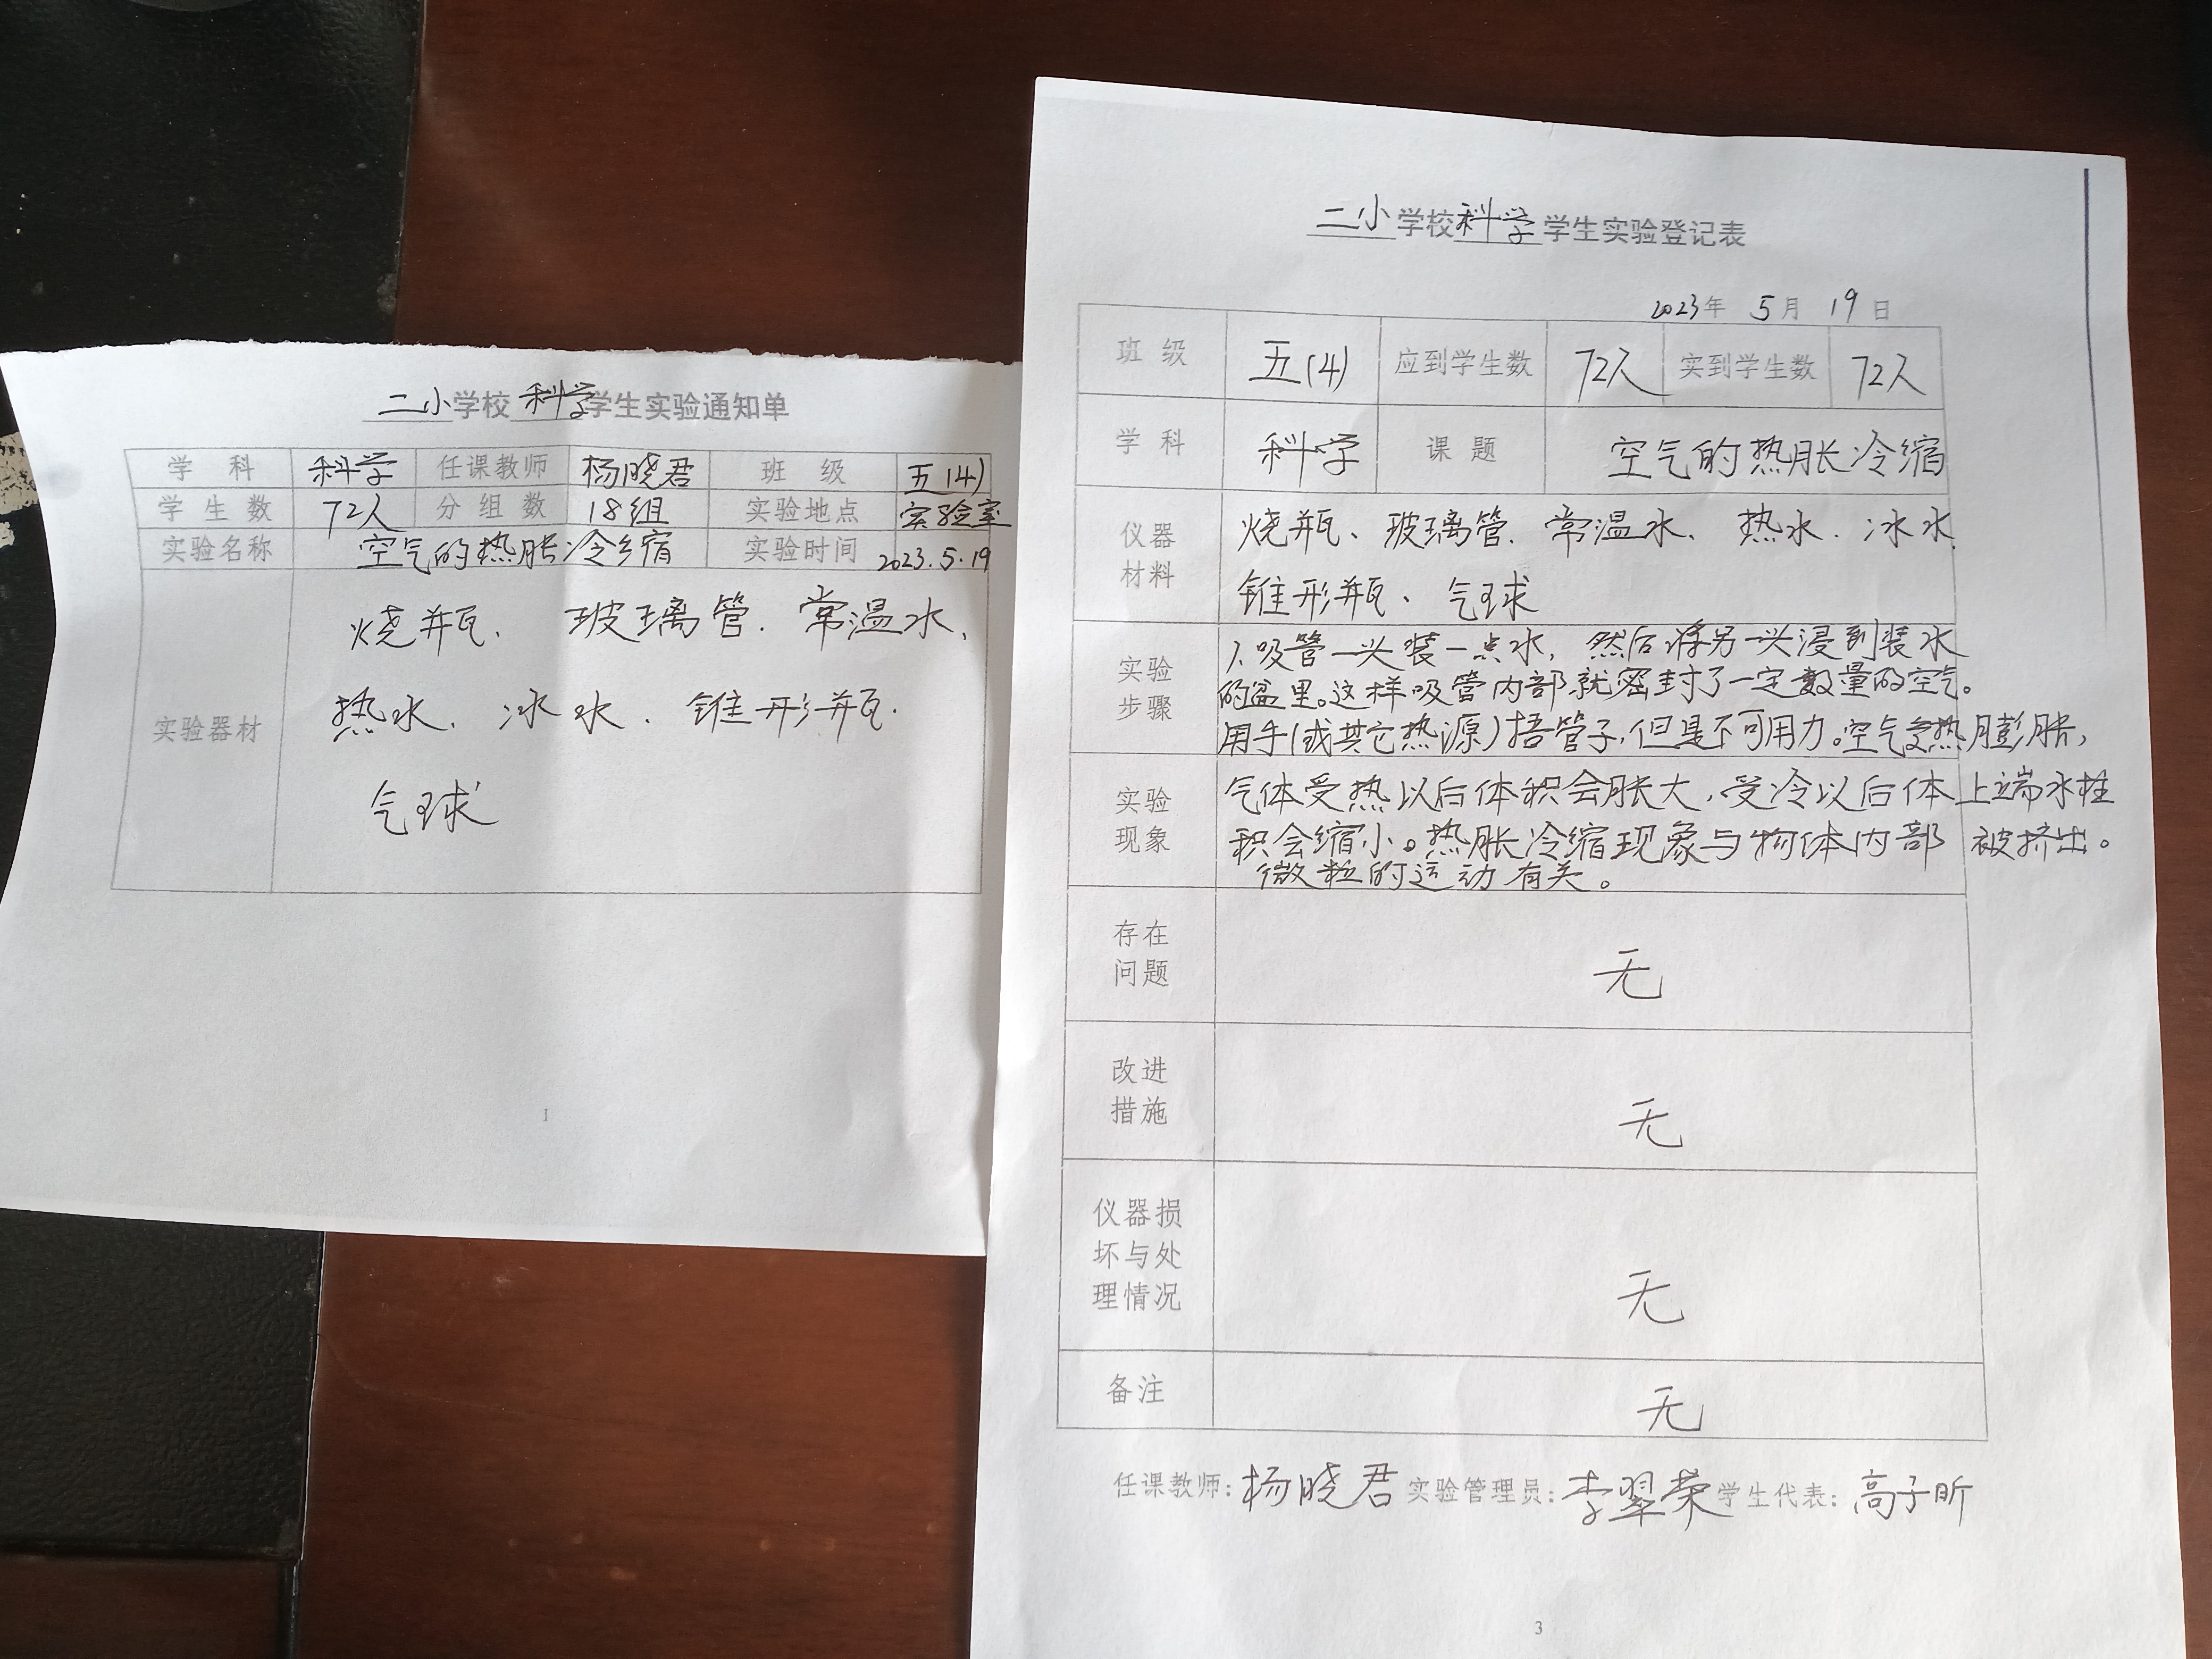 二小学校科学学生实验通知单
学 科 科学 任课教师 杨晓君 班 级 五(4)
学 生 数 72人 分 组 数 18组 实验地点 实验室
实验名称 空气的热胀冷缩 实验时间 2023.5.19
实验器材
烧瓶、玻璃管、常温水、
热水、冰水、锥形瓶、
气球
1
二小学校科学学生实验登记表
2023年 5月 19日
班 级 五(4) 应到学生数 72人 实到学生数 72人
学 科 科学 课 题 空气的热胀冷缩
仪器
材料
烧瓶、玻璃管、常温水、热水、冰水、
锥形瓶、气球
实验
步骤
1、吸管一头装一点水,然后将另一头浸到装水
的盆里。这样吸管内部就密封了一定数量的空气。
用手(或其它热源)捂管子,但是不可用力。空气受热膨胀,
上端水柱
被挤出。
实验
现象
气体受热以后体积会胀大,受冷以后体
积会缩小。热胀冷缩现象与物体内部
微粒的运动有关。
存在
问题
无
改进
措施
无
仪器损
坏与处
理情况
无
备注
无
任课教师:杨晓君 实验管理员:李翠荣 学生代表:高子昕
3